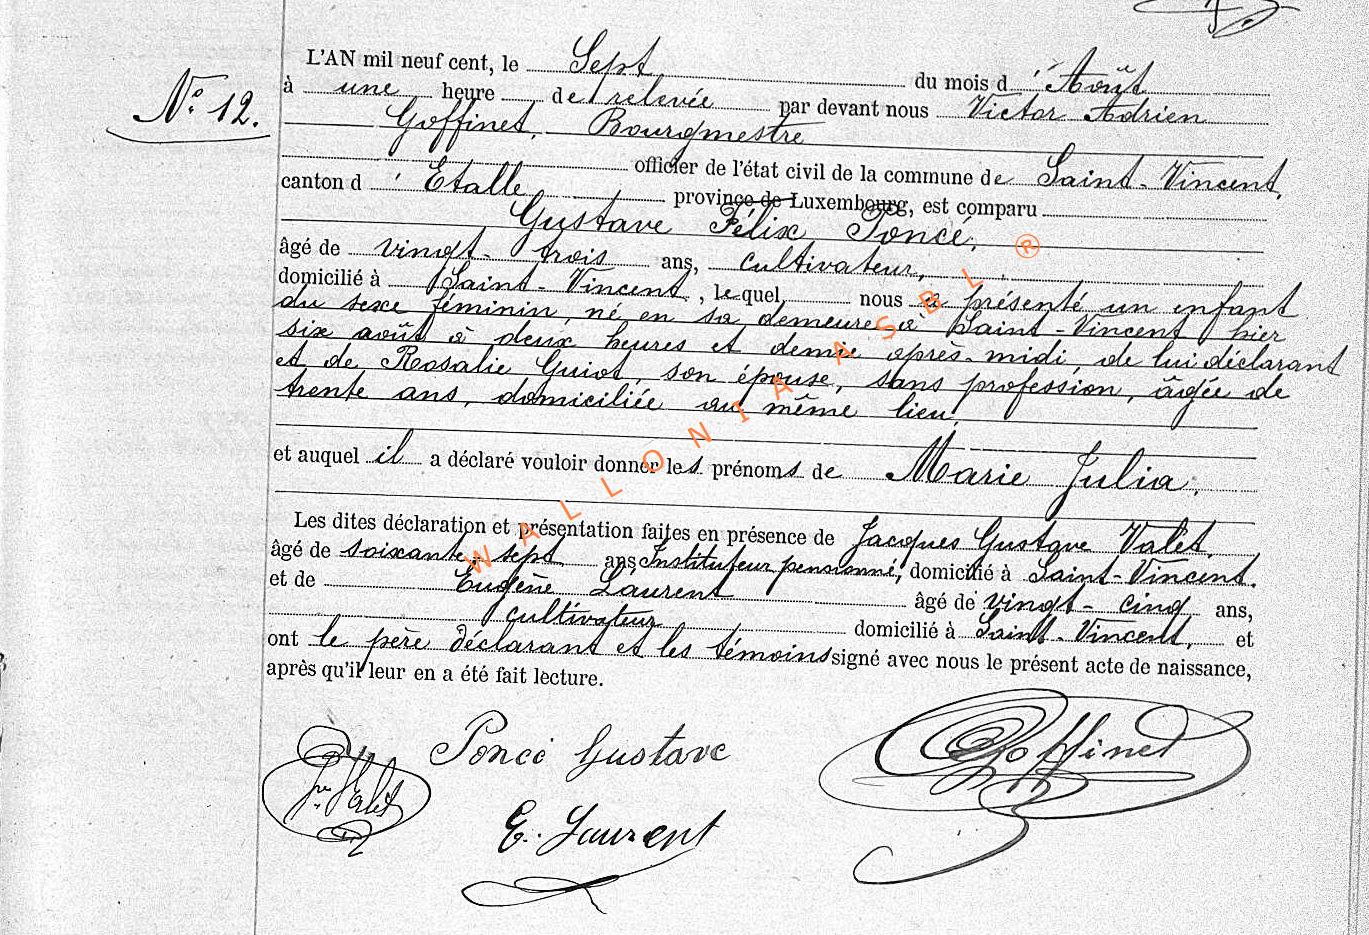 N° 12.
L'AN mil neuf cent, le Sept du mois d'Août
à une heure de relevée par devant nous Victor Adrien
Goffinet, Bourgmestre
officier de l'état civil de la commune de Saint-Vincent,
canton d'Etalle province de Luxembourg, est comparu
Gustave Félix Poncé,
âgé de vingt-trois ans, cultivateur,
domicilié à Saint-Vincent, lequel nous a présenté un enfant
du sexe féminin, né en sa demeure à Saint-Vincent hier
six août à deux heures et demie après-midi, de lui déclarant
et de Rosalie Guiot, son épouse, sans profession, âgée de
trente ans, domiciliée au même lieu,
et auquel il a déclaré vouloir donner les prénoms de Marie Julia,
Les dites déclaration et présentation faites en présence de Jacques Gustave Valet,
âgé de soixante-sept ans Instituteur pensionné, domicilié à Saint-Vincent.
et de Eugène Laurent âgé de vingt-cinq ans,
cultivateur domicilié à Saint-Vincent, et
ont le père déclarant et les témoins signé avec nous le présent acte de naissance,
après qu'il leur en a été fait lecture.
Poncé Gustave
Goffinet
Valet
E. Laurent
WALLONIA ASBL ®